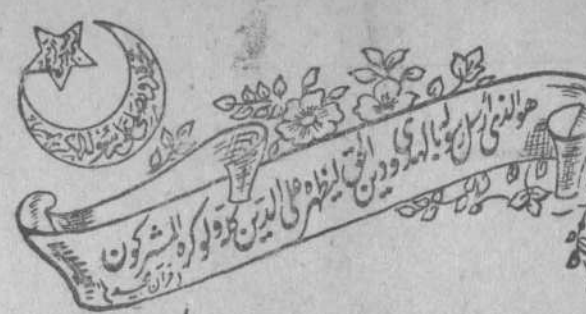 هو الذی ارسل رسوله بالهدی و دین الحق لیظهره علی الدین کله ولو کره المشرکون
(قرآن مجید)